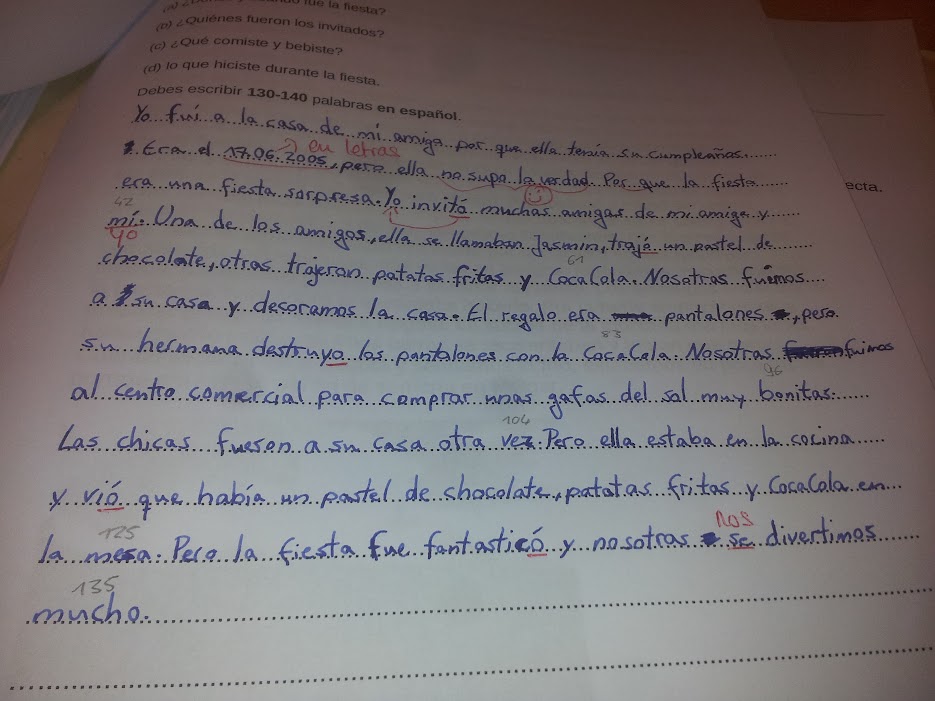 fue la fiesta?
(b) ¿Quiénes fueron los invitados?
(c) ¿Qué comiste y bebiste?
(d) lo que hiciste durante la fiesta.
Debes escribir 130-140 palabras en español.
Yo fuí a la casa de mi amiga por que ella tenía su cumpleaños.
en letras
Era el 17.06.2005, pero ella no supo la verdad. Por que la fiesta
ecta.
era una fiesta sorpresa. Yo invitó muchas amigas de mi amiga y
42
mí. Una de los amigos, ella se llamaban Jasmin, trajó un pastel de
yo
61
chocolate, otras trajeron patatas fritas y CocaCola. Nosotras fuimos
a su casa y decoramos la casa. El regalo era pantalones, pero
83
su hermana destruyo los pantalones con la CocaCola. Nosotras fuimos
96
al centro comercial para comprar unas gafas del sol muy bonitas.
104
Las chicas fueron a su casa otra vez. Pero ella estaba en la cocina
y vió que había un pastel de chocolate, patatas fritas y CocaCola en
125
nos
la mesa. Pero la fiesta fue fantasticó y nosotras se divertimos
135
mucho.